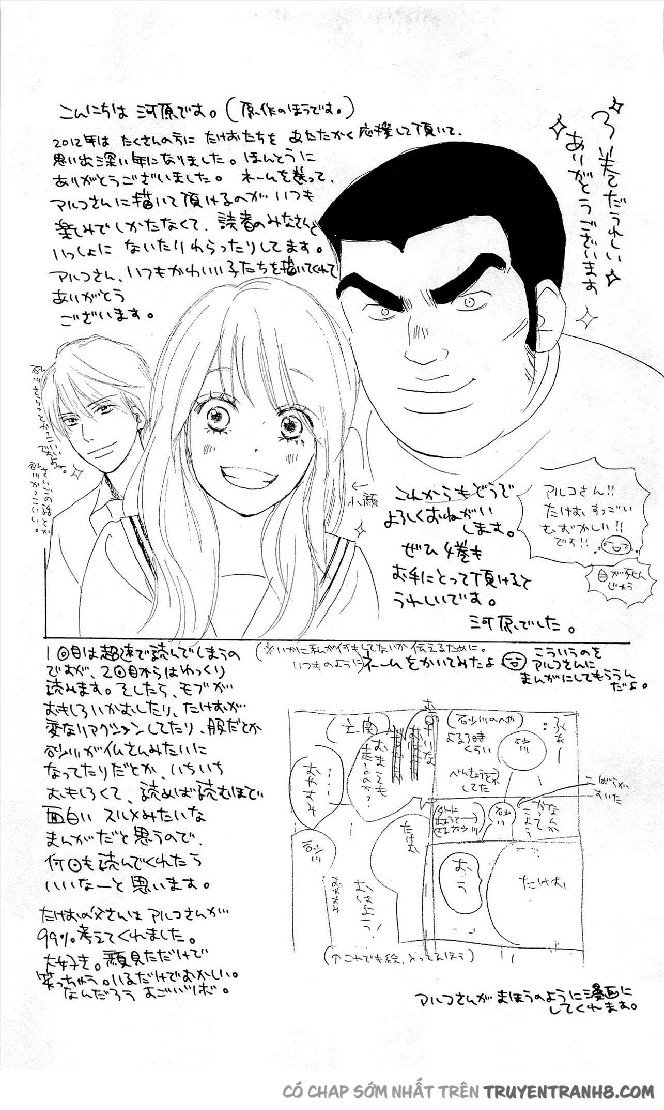 こんにちは 河原です。(原作のほうです。)
2012年は たくさんの方に たけおたちを あたたかく応援して頂いて、
思い出深い年になりました。ほんとうに
ありがとうございました。 ネームを
アルコさんに描いて頂けるのがいつも
楽しみでしかたなくて、読者のみなさんと
いっしょに ないたりわらったりしてます。
アルコさん、いつもかわいい子たちを描いてくれて
ありがとう
ございます。
3巻でだうれしい
ありがとうございます
←小顔
これからもどうぞ
よろしくおねがい
します。
ぜひ4巻も
お手にとって頂けると
うれしいです。
河原でした。
アルコさん!!
たけお すっごい
むずかしい!!
です!!
1回目は超速で読んでしまうの
ですが、2回目からはゆっくり
読みます。そしたら、モブが
おもしろいかおしたり、たけおが
変なリアクションしてたり、服だとか
砂川がイムさんみたいに
なってたりだとか、いちいち
おもしろくて、読めば読むほど
面白い スルメみたいな
まんがだと思うので、
何回も読んでくれたら
いいなーと思います。
たけおの父さんは アルコさんが
99%考えてくれました。
大好き。顔見ただけで
笑っちゃう。いるだけでおかしい。
なんだろう すごいツボ。
(※いかに私が何もしてないか伝えるために。
いつものように ネームをかいてみたよ
こういうのを
アルコさんに
まんがにしてもらうん
だよ。
玄関
砂川のへや
よる7時
くらい
砂川
べんきょうとか
してた
おやすみ
たけお
砂川
おう
たけお
おはよう!
(↑これでも絵、とってえほう)
アルコさんが まほうのように漫画に
してくれます。
CÓ CHAP SỚM NHẤT TRÊN TRUYENTRANH8.COM